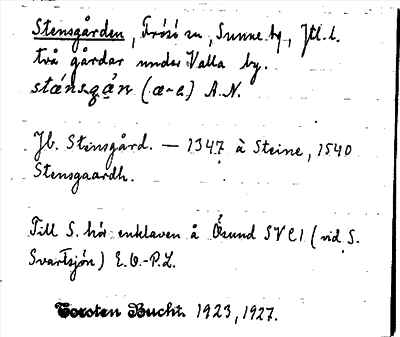 Stensgården, Frösö sn, Sunne hg, Jtl. l.
två gårdar under Valla by.
stánsgán (a-a) A.N.
Jb. Stensgård. — 1347 à Steine, 1540
Stensgaardh.
Till S. hör enklaven å Ösund SV C1 (vid S.
Svartsjön) E.O.-P.L.
Torsten Bucht. 1923, 1927.